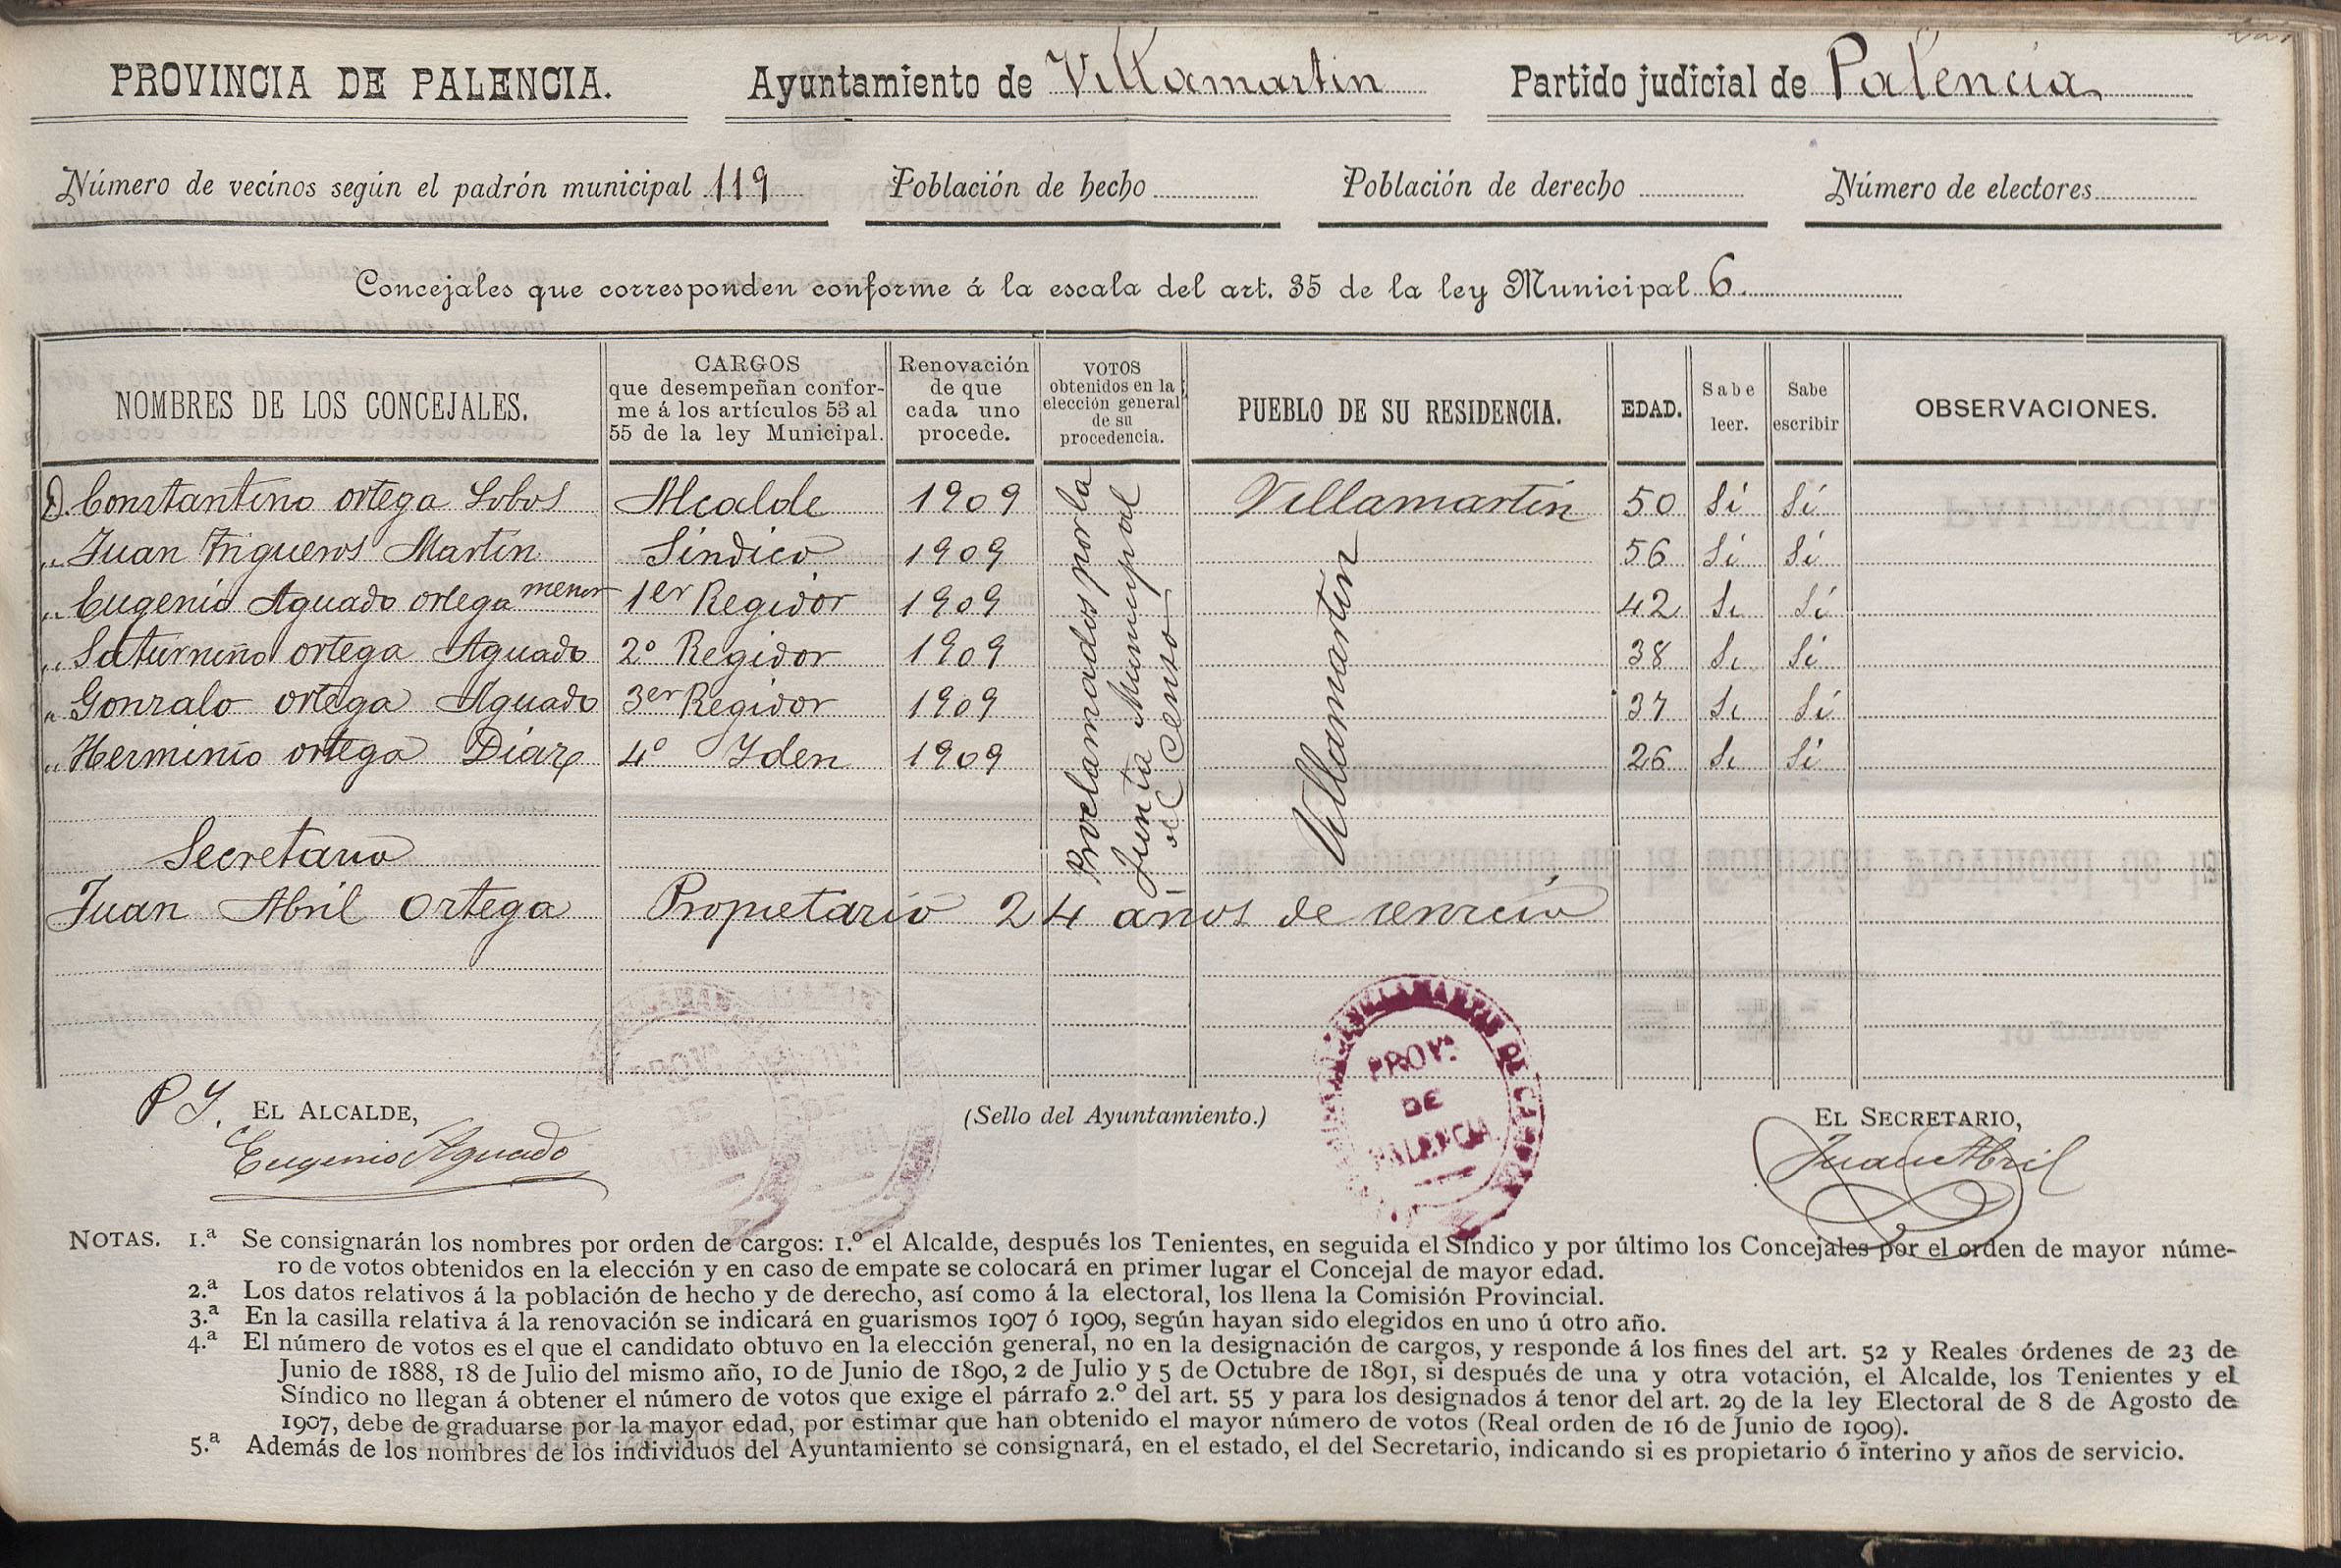 PROVINCIA DE PALENCIA. Ayuntamiento de Villamartin Partido judicial de Palencia
Número de vecinos según el padrón municipal 119 Población de hecho Población de derecho Número de electores
Concejales que corresponden conforme á la escala del art. 35 de la ley Municipal 6.
NOMBRES DE LOS CONCEJALES.
CARGOS
que desempeñan confor-
me á los artículos 53 al
55 de la ley Municipal.
Renovación
de que
cada uno
procede.
VOTOS
obtenidos en la
elección general
de su
procedencia.
PUEBLO DE SU RESIDENCIA.
EDAD.
Sabe
leer.
Sabe
escribir
OBSERVACIONES.
D. Constantino ortega Lobos Alcalde 1909 Villamartin 50 Sí Sí
„ Juan Trigueros Martín Síndico 1909 56 Sí Sí
„ Eugenio Aguado ortega menor 1er Regidor 1909 42 Si Sí
„ Saturnino ortega Aguado 2º Regidor 1909 38 Si Sí
„ Gonzalo ortega Aguado 3er Regidor 1909 37 Si Sí
„ Herminio ortega Diaz 4º Yden 1909 26 Si Sí
Proclamados por la
Junta Municipal
del Censo
Villamartin
Secretario
Juan Abril Ortega Propietario 24 años de servicio
P Y. EL ALCALDE,
Eugenio Aguado
(Sello del Ayuntamiento.)
PROV.ª
DE
PALENCIA
EL SECRETARIO,
Juan Abril
NOTAS. 1.ª Se consignarán los nombres por orden de cargos: 1.º el Alcalde, después los Tenientes, en seguida el Síndico y por último los Concejales por el orden de mayor núme-
ro de votos obtenidos en la elección y en caso de empate se colocará en primer lugar el Concejal de mayor edad.
2.ª Los datos relativos á la población de hecho y de derecho, así como á la electoral, los llena la Comisión Provincial.
3.ª En la casilla relativa á la renovación se indicará en guarismos 1907 ó 1909, según hayan sido elegidos en uno ú otro año.
4.ª El número de votos es el que el candidato obtuvo en la elección general, no en la designación de cargos, y responde á los fines del art. 52 y Reales órdenes de 23 de
Junio de 1888, 18 de Julio del mismo año, 10 de Junio de 1890, 2 de Julio y 5 de Octubre de 1891, si después de una y otra votación, el Alcalde, los Tenientes y el
Síndico no llegan á obtener el número de votos que exige el párrafo 2.º del art. 55 y para los designados á tenor del art. 29 de la ley Electoral de 8 de Agosto de
1907, debe de graduarse por la mayor edad, por estimar que han obtenido el mayor número de votos (Real orden de 16 de Junio de 1909).
5.ª Además de los nombres de los individuos del Ayuntamiento se consignará, en el estado, el del Secretario, indicando si es propietario ó interino y años de servicio.